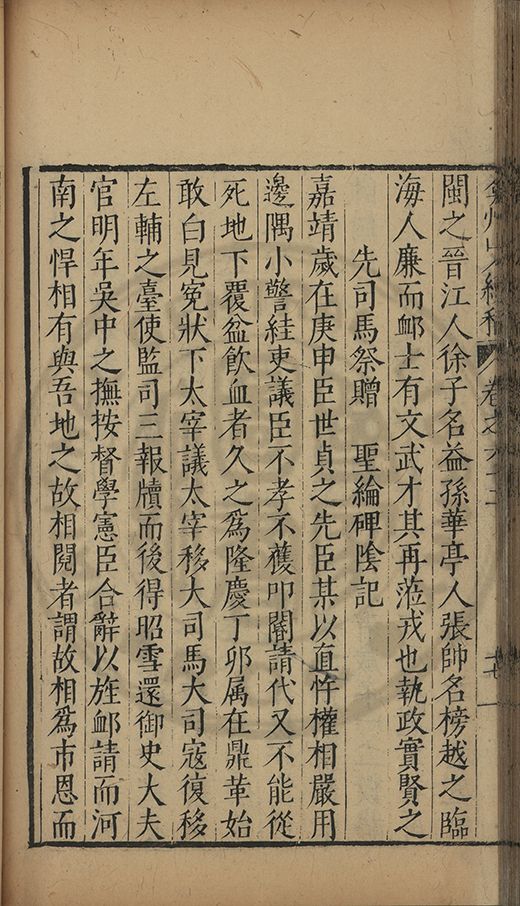 弇州山人續稿 卷之六十
閩之晉江人徐子名益孫華亭人張帥名榜越之臨
海人廉而䘏士有文武才其再蒞戎也執政實賢之
先司馬祭贈　聖綸碑陰記
嘉靖歲在庚申臣世貞之先臣某以直忤權相嚴用
邊隅小警絓吏議臣不孝不獲叩閽請代又不能從
死地下覆盆飲血者久之爲隆慶丁卯属在鼎革始
敢白見冤狀下太宰議太宰移大司馬大司寇復移
左輔之臺使監司三報牘而後得昭雪還御史大夫
官明年吳中之撫按督學憲臣合辭以旌䘏請而河
南之悍相有與吾地之故相鬩者謂故相爲市恩而